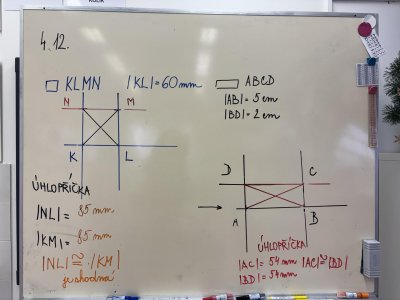 4.12.
□ KLMN |KL|=60mm
N M
K L
ÚHLOPŘÍČKA
|NL|= 85 mm
|KM|= 85 mm
|NL| ≅ |KM|
je shodná
▭ ABCD
|AB|= 5 cm
|BD|= 2 cm
D C
A B
ÚHLOPŘÍČKA
|AC|= 54 mm |AC|≅|BD|
|BD|= 54 mm